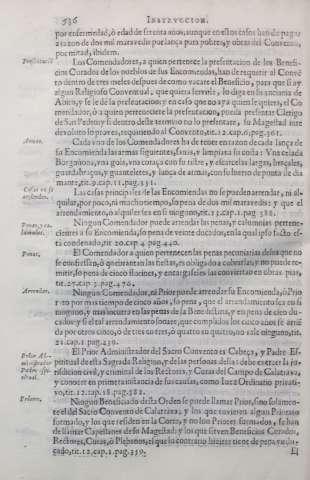 536 INSTRVCCION.
por enfermedad, ò edad de setenta años, aunque en estos casos han de pagar
a razon de dos mil maravedis por lança para pobres, y obras del Convento,
por mitad, ibidem.
Los Comendadores, a quien pertenece la presentacion de los Benefi-
cios Curados de los pueblos de sus Encomiendas, han de requerir al Conve
to dentro de tres meses despues de como vacare el Beneficio, para que si ay
algun Religioso Conventual, que quiera servirle, lo diga en su anciania de
Abito, y se le dè la presentacion: y en caso que no aya quien le quiera, el Co
mendador, ò a quien perteneciere la presentacion, pueda presentar Clerigo
de San Pedro: y si dentro deste termino no lo presentare, su Magestad in
devoluto lo provee, requiriendo al Convento, tit.12.cap.6.pag.361.
Armas.
Cada vno de los Comendadores ha de tener en razon de cada lança de
su Encomienda las armas siguientes, sanas, y limpias a su costa: Vna celada
Borgoñona, vna gola, vna coraça con su ristre, y escarcelas largas, braçales,
guardabraços, y guanteletes, y lança de armas, con su hierro de punta de dia
mante, tit.9.cap.11.pag.331.
Las casas principales de las Encomiendas no se pueden arrendar, ni al-
quilar, por poco, ni mucho tiempo, so pena de dos mil maravedis: y que el
arrendamiento, o alquiler sea en si ninguno, tit.13.cap.1.pag.388.
Ningun Comendador puede arrendar las penas, y calumnias pertene-
cientes a su Encomienda, so pena de veinte ducados, en la qual ipso facto es-
tà condenado, tit.20.cap.4.pag.440.
Penas.
El Comendador a quien pertenecen las penas pecuniarias de los que no
se confiessan, ò quebrantan las fiestas, es obligado a cobrarlas, y no puede re-
mitir, so pena de cinco florines, y encargasele las convierta en obras pias,
tit.27.cap.3.pag.470.
Arrendar.
Ningun Comendador, ni Prior puede arrendar su Encomienda, ò Prio
rato por mas tiempo de cinco años, so pena, que el arrendamiento sea en si
ninguno, y mas incurra en las penas de la Benedictina, y en pena de cien du-
cados: y si el tal arrendamiento sonare, que cumplidos los cinco años se arrie
da por otros cinco, ò de tres en tres, ò quatro en quatro, no vale ninguno, tit.
21.cap.1.pag.439.
El Prior Administrador del Sacro Convento es Cabeça, y Padre Es-
piritual de esta Sagrada Religion, y de las personas della: debe exercer la ju-
risdicion civil, y criminal de los Rectores, y Curas del Campo de Calatrava,
y conocer en primera instancia de sus causas, como Iuez Ordinario privati-
vo, tit.12.cap.18.pag.382.
Priores.
Ningun Beneficiado desta Orden se puede llamar Prior, sino solamen-
te el del Sacro Convento de Calatrava, y los que tuvieren algun Priorato
formado, y los que residen en la Corte, y no son Priores formados, se han
de llamar Capellanes de su Magestad: y los que sirven Beneficios Curados,
Rectores, Curas, ò Plebanos, el que lo contrario hiziere tiene de pena vn du-
cado, tit.12.cap.1.pag.350.
El